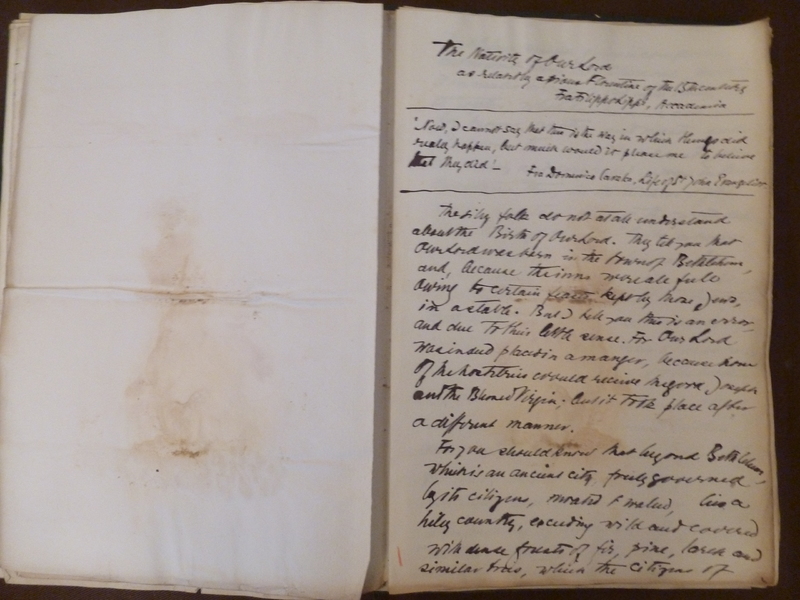 The Nativity of Our Lord
as related by a pious Florentine of the 15th century
Fra Filippo Lippi, Accademia
'Now, I cannot say that this is the way in which things did
really happen, but much would it please me to believe
that they did'—  Fra Domenico Cavalca, Life of St John Evangelist
The silly folk do not at all understand
about the Birth of Our Lord. They tell you that
Our Lord was born in the town of Bethlehem,
and, because the inns were all full
owing to certain feasts kept by those Jews,
in a stable. But I tell you this is an error,
and due to this little sense. For Our Lord
was indeed placed in a manger, because none
of the hostelries would receive the good Joseph
and the Blessed Virgin; but it took place after
a different manner.
For you should know that beyond Bethlehem,
which is an ancient city, freely governed
by its citizens, moated & walled, lies a
hilly country, exceeding wild and covered
with dense forests of fir, pine, larch and
similar trees, which the citizens of